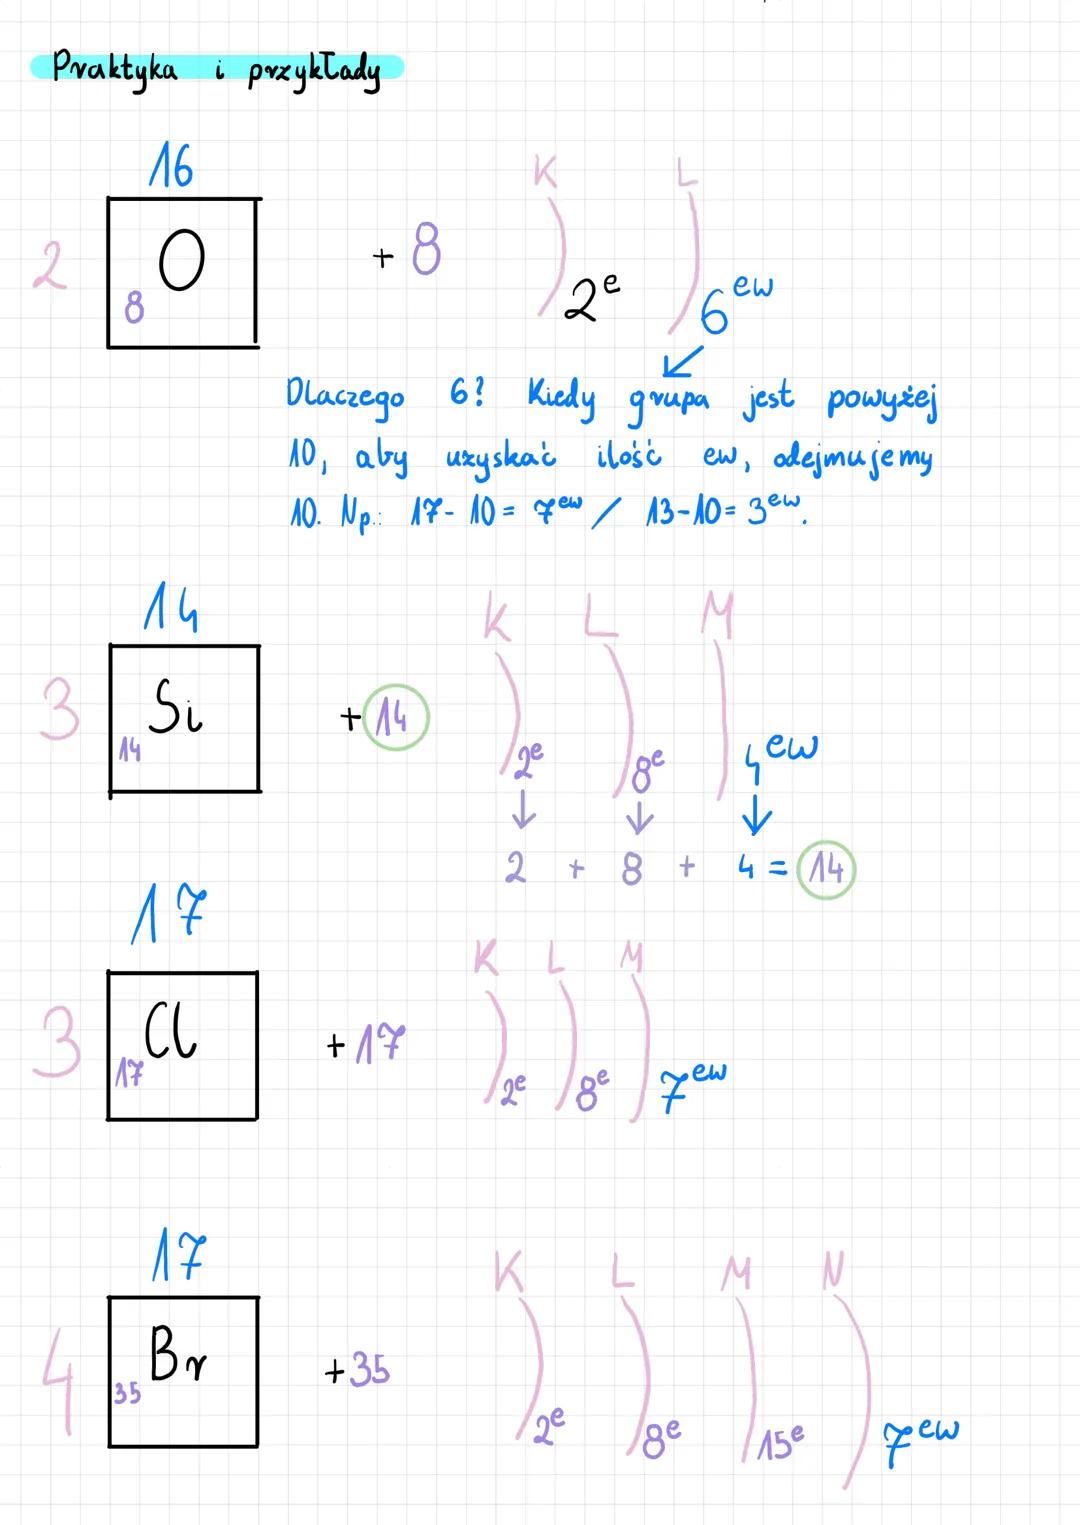 Praktyka i przykłady
16
2 O 8 + 8 K L 2e 6ew
Dlaczego 6? Kiedy grupa jest powyżej
10, aby uzyskać ilość ew, odejmujemy
10. Np.: 17-10= 7ew / 13-10= 3ew.
14
3 Si 14 + 14 K L M 2e 8e 4ew
2 + 8 + 4 = 14
17
3 Cl 17 + 17 K L M 2e 8e 7ew
17
4 Br 35 + 35 K L M N 2e 8e 15e 7ew